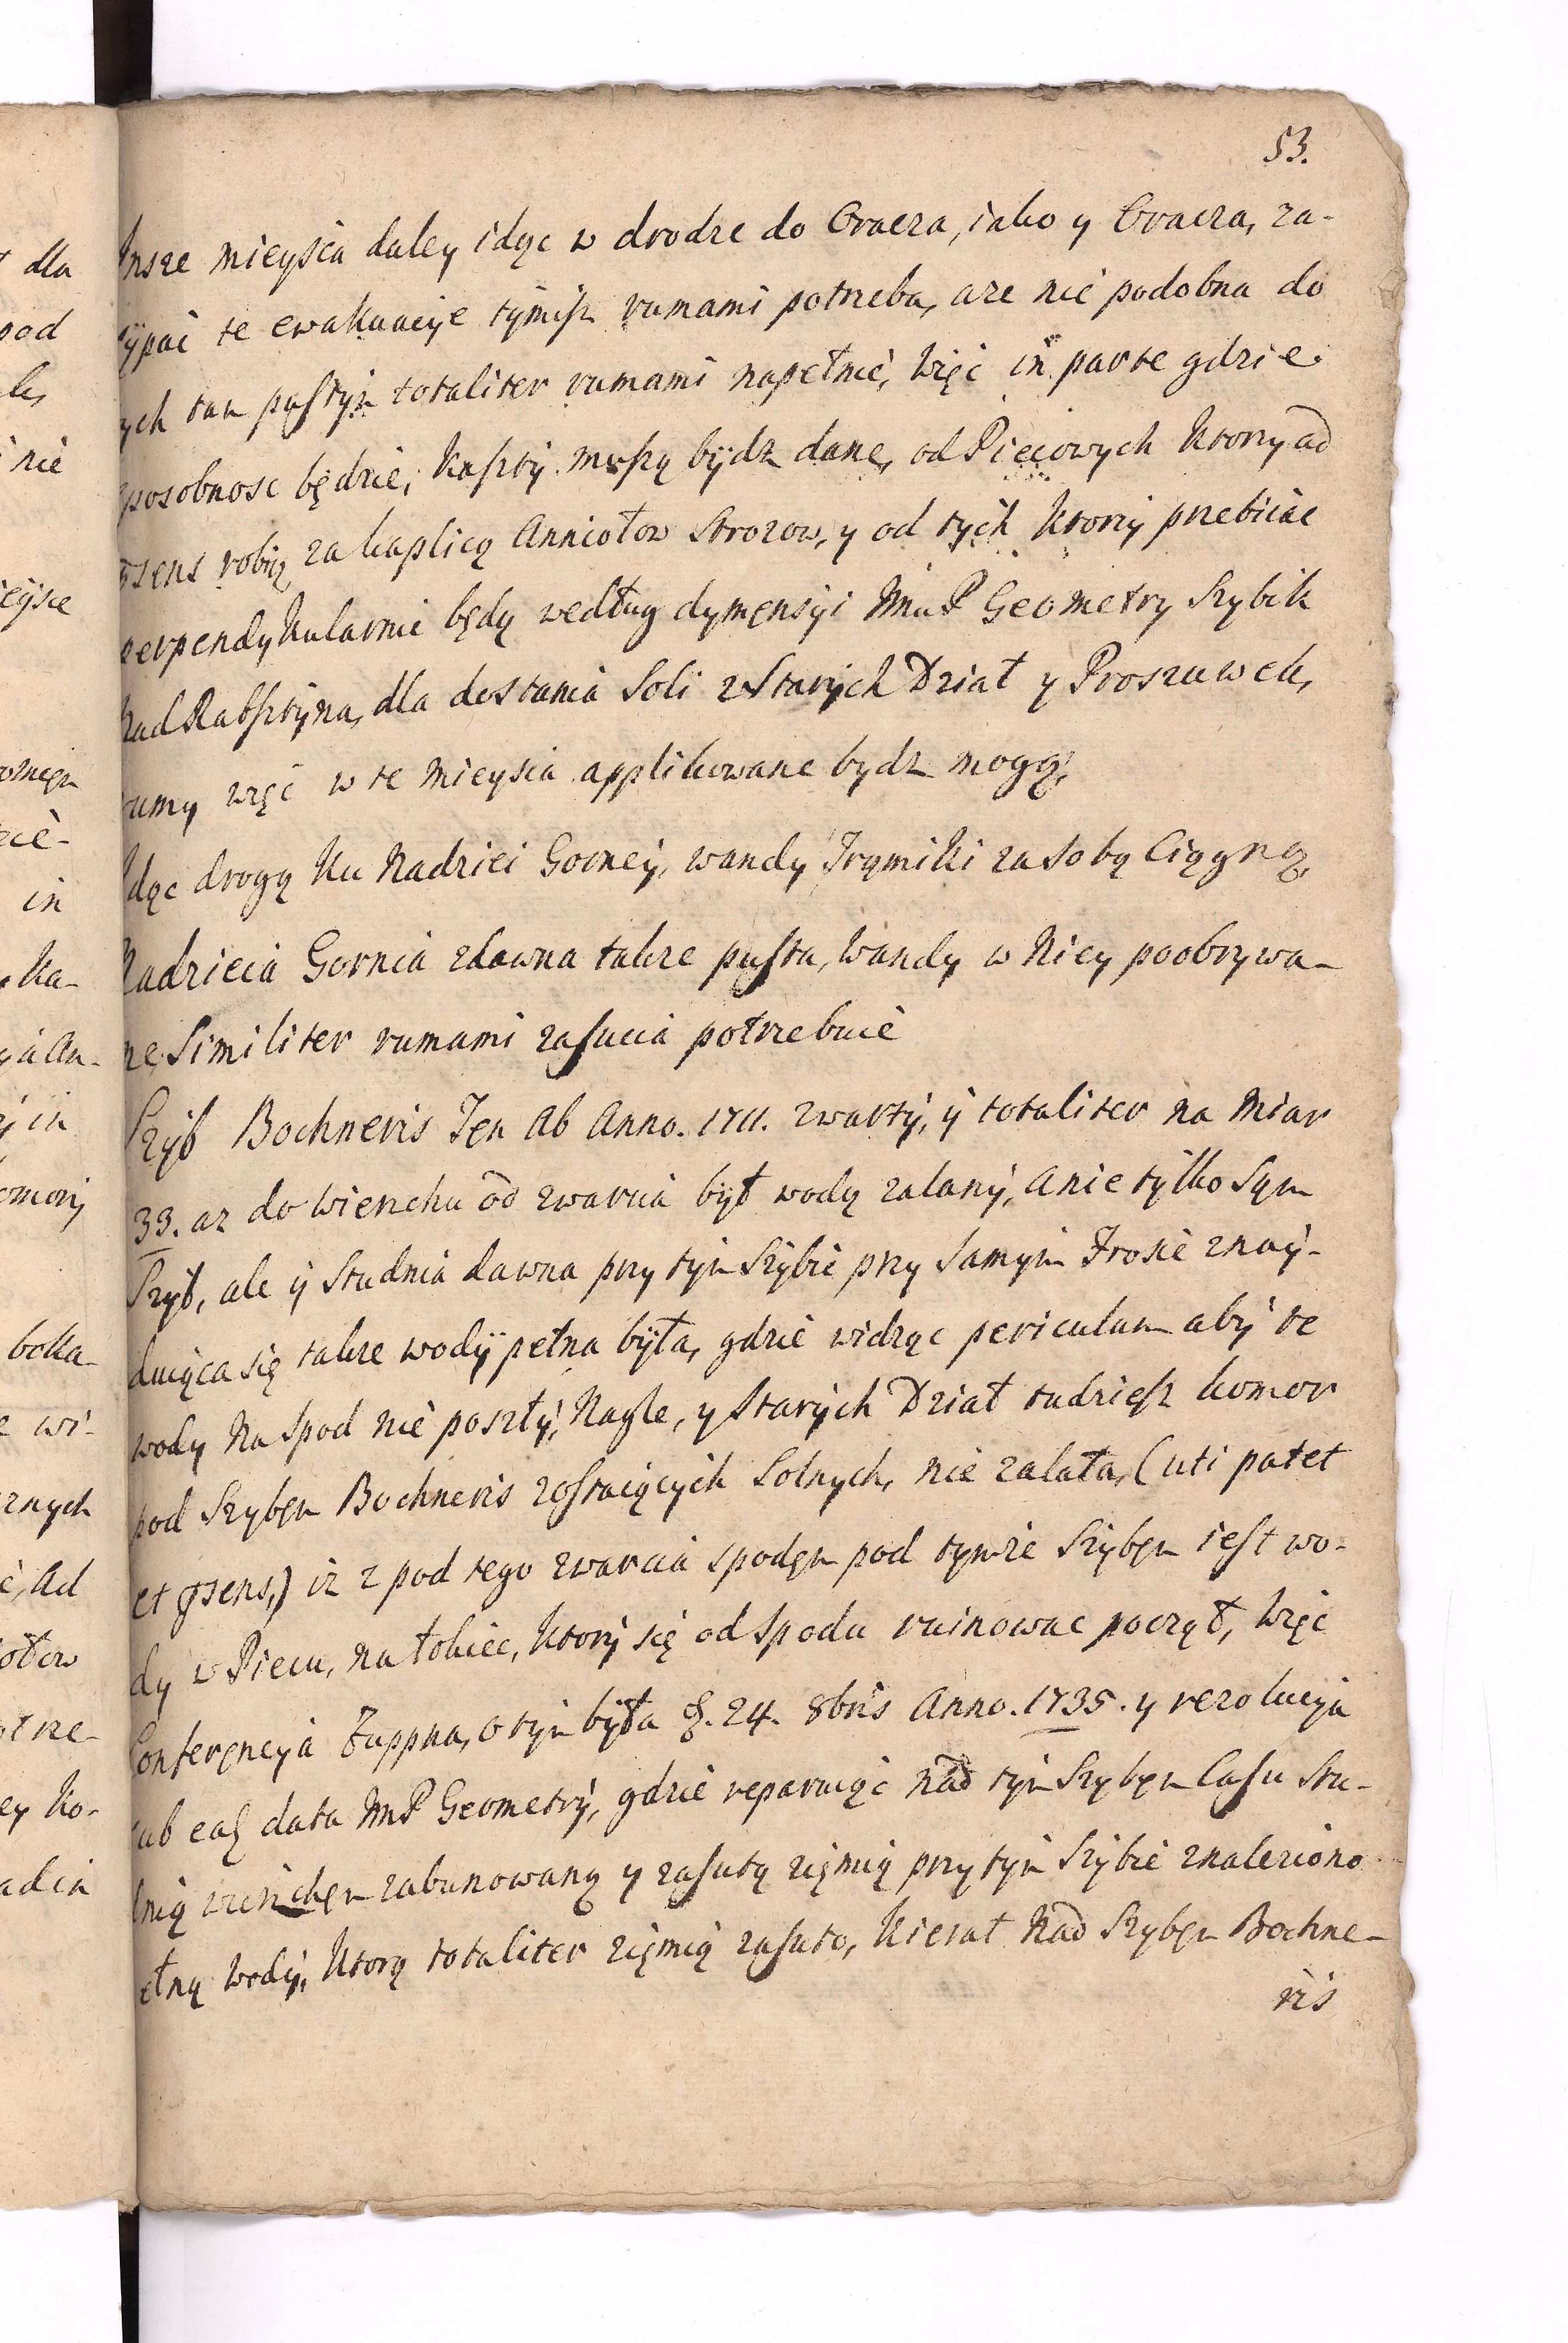 53.
Insze mieyscia daley idąc w drodze do Gracza, iako y Gracza, za-
sÿpać te ewakuacÿe tÿmisz rumami potrzeba, aze nié podobna do
ych tak pustÿn totaliter rumami napełnić, Więc in parte gdzie
sposobnosc będzie, Kasztÿ muszą bÿdz dane, od Piecowych Ktorzy ad
psens robią za kaplicą Anniołow Strozow, y od tych Ktorzÿ przebiiac
perpendykularnie będą według dymęnsÿi ImuP Geometry Szybik
nad Rabsztÿna, dla dostania Soli z Starÿch Dział y Proszuwek,
rumy więc w te mieyscia applikowane bydz mogą,
Idąc drogą Ku Nadziei Gorneÿ, wandy Trąmiki za sobą Ciągną,
Nadzieia Gornia zdawna takze pusta, Wandy w Niey poobrywa-
ne Similiter rumami zasucia potrzebuié
Szÿb Bochneris Ten Ab Anno. 1711. zwartÿ, ÿ totaliter na Miar
33. az do Wierzchu od zwarcia bÿł wodą zalanÿ, a nie tÿlko Sąm
Szÿb, ale ÿ Studnia dawna przy tÿm Szÿbié przy Samym Trosié znaÿ-
duiąca się takze wodÿ pełna bÿła, gdzié widząc periculum abÿ te
wody Na Spod nié poszłÿ, Nagle, y Starÿch Dział tudziesz komor
pod Szybęm Bochneris zostaiącÿch Solnych, nié zalała, (uti patet
et psens,) iz z pod tego zwarcia spodęm pod tymze Szybęm iest wo-
dy w Piecu, na łokiec, Ktorÿ się od Spodu ruinowac począł, Więc
Conferęncÿa Zuppna, o tÿm bÿła d. 24. 8bris Anno. 1735. y rezolucÿa
sub ead data ImP Geometrÿ, gdzié reparuiąc nad tÿm Szybęm Casu Stu-
dnią wierzchęm zabunowaną y zasutą zięmią przy tÿm Szÿbié znaleziono
ełną wodÿ, Ktorą totaliter zięmią zasuto, Kierat Nad Szybęm Bochne-
ris
dla
pod
nié
in
Ka-
boka-
wi-
Ad
Ko-